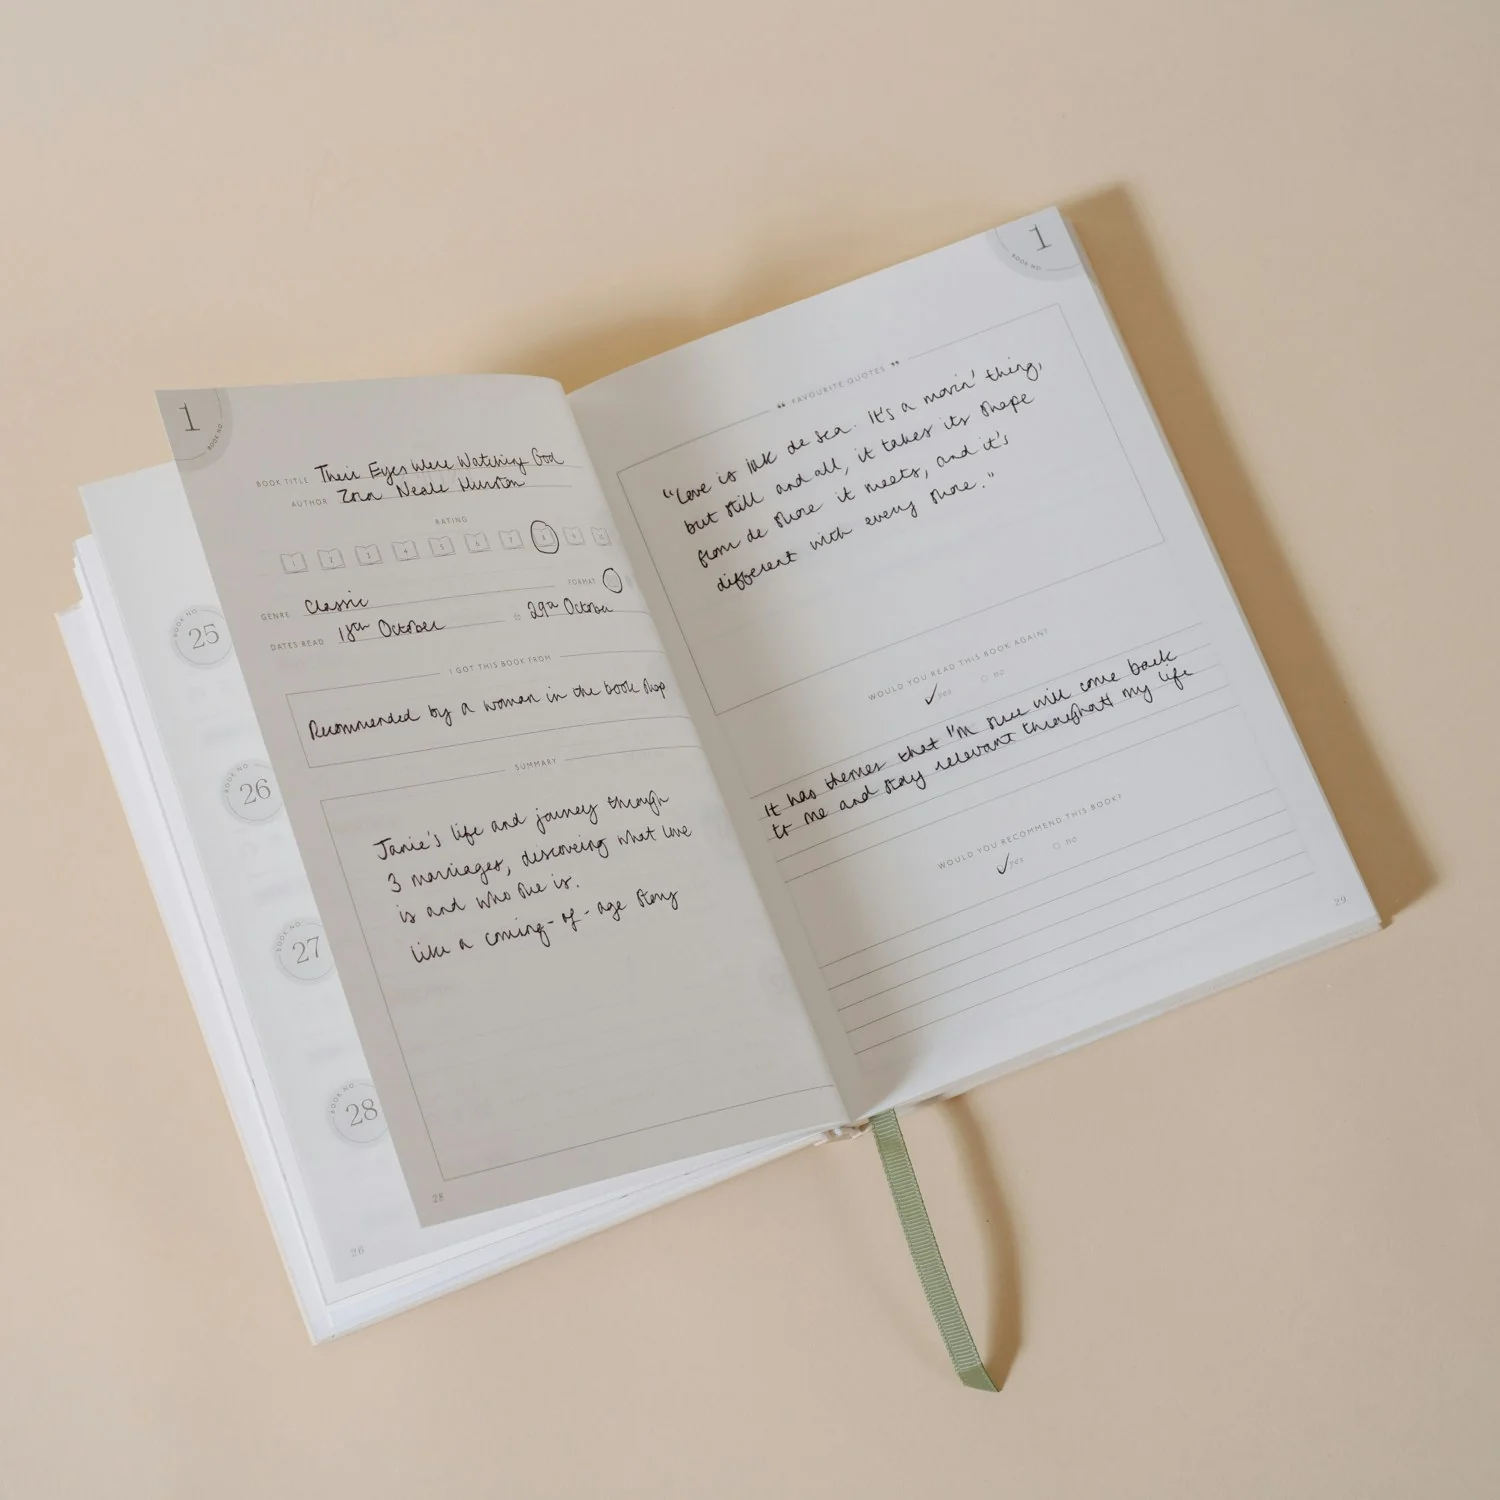 1
BOOK NO
BOOK TITLE Their Eyes Were Watching God
AUTHOR Zora Neale Hurston
RATING
1 2 3 4 5 6 7 8 9 10
GENRE Classic FORMAT
DATES READ 18th October to 29th October
I GOT THIS BOOK FROM
Recommended by a woman in the book shop
SUMMARY
Janie's life and journey through
3 marriages, discovering what love
is and who she is.
like a coming-of-age story
28
BOOK NO 25
BOOK NO 26
BOOK NO 27
BOOK NO 28
26
1
BOOK NO
“ FAVOURITE QUOTES ”
"Love is lak de sea. It's a movin' thing,
but still and all, it takes its shape
from de shore it meets, and it's
different with every shore."
WOULD YOU READ THIS BOOK AGAIN?
yes no
It has themes that I'm sure will come back
to me and stay relevant throughout my life
WOULD YOU RECOMMEND THIS BOOK?
yes no
29